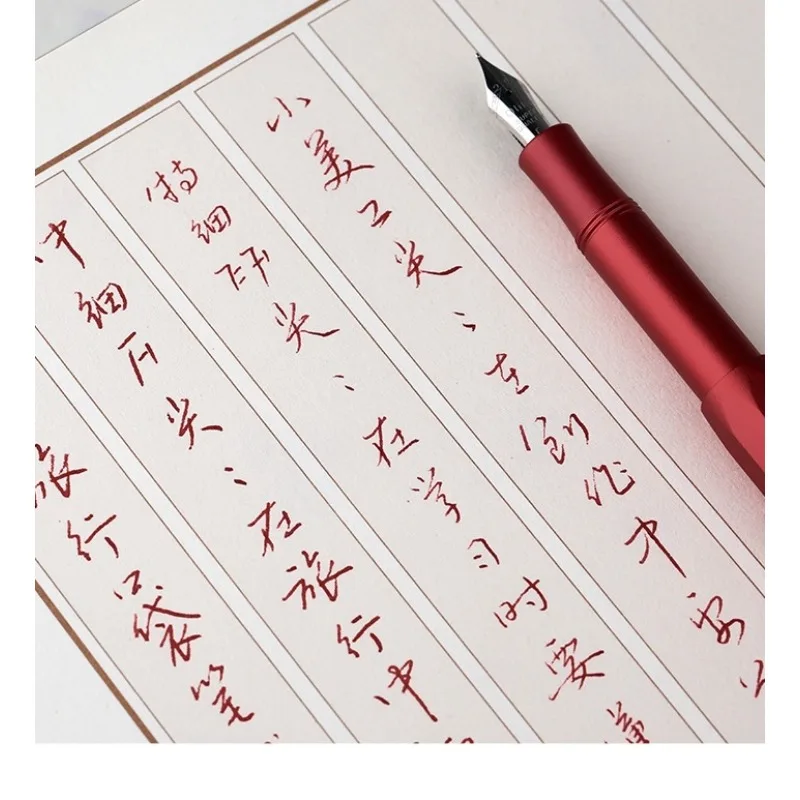 小美工尖：在创作中
特细EF尖：在学习时要
中细F尖：在旅行中
旅行口袋笔